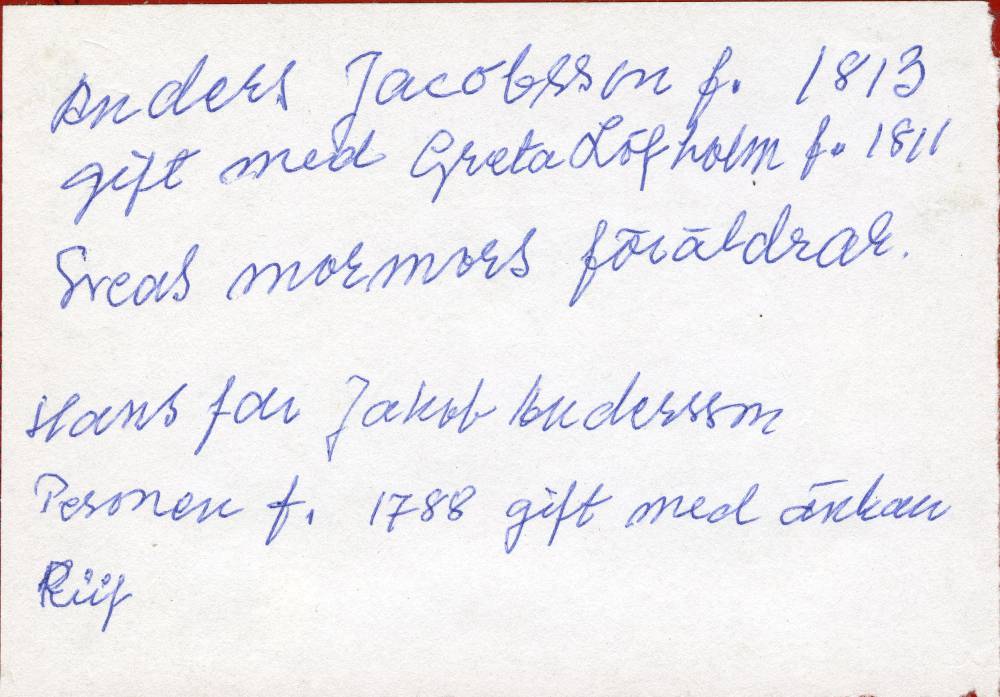 Anders Jacobsson f. 1813
gift med Greta Löfholm f. 1811
Sveas mormors föräldrar.
Hans far Jakob Andersson
Pesonen f. 1788 gift med änkan